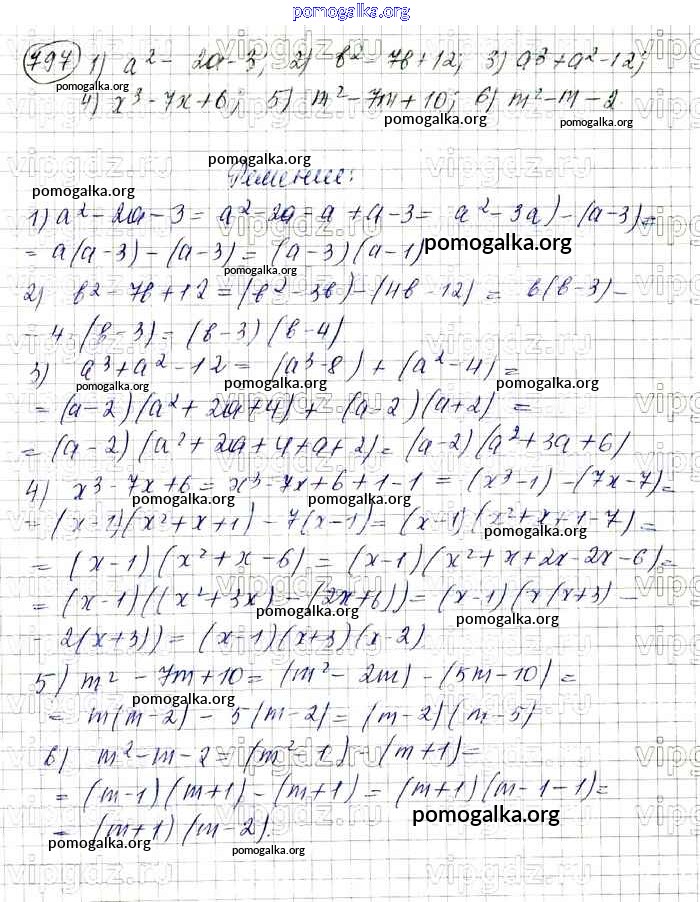 pomogalka.org
797 1) a² - 2a - 3; 2) b² - 7b + 12; 3) a³ + a² - 12;
pomogalka.org
4) x³ - 7x + 6; 5) m² - 7m + 10; 6) m² - m - 2.
pomogalka.org pomogalka.org
pomogalka.org
Решение:
pomogalka.org
1) a² - 2a - 3 = a² - 2a - a + a - 3 = a² - 3a) - (a - 3) =
= a(a - 3) - (a - 3) = (a - 3)(a - 1) pomogalka.org
pomogalka.org
2) b² - 7b + 12 = (b² - 3b) - (4b - 12) = b(b - 3) -
- 4 · (b - 3) = (b - 3)(b - 4)
3) a³ + a² - 12 = (a³ - 8) + (a² - 4) =
pomogalka.org pomogalka.org pomogalka.org
= (a - 2)(a² + 2a + 4) + (a - 2)(a + 2) =
= (a - 2)(a² + 2a + 4 + a + 2) = (a - 2)(a² + 3a + 6)
4) x³ - 7x + 6 = x³ - 7x + 6 + 1 - 1 = (x³ - 1) - (7x - 7) =
pomogalka.org pomogalka.org
= (x - 1)(x² + x + 1) - 7(x - 1) = (x - 1)(x² + x + 1 - 7) =
pomogalka.org
= (x - 1)(x² + x - 6) = (x - 1)(x² + x + 2x - 2x - 6) =
= (x - 1)((x² + 3x) - (2x + 6)) = (x - 1)(x(x + 3) -
pomogalka.org pomogalka.org
- 2(x + 3)) = (x - 1)(x + 3)(x - 2)
5) m² - 7m + 10 = (m² - 2m) - (5m - 10) =
pomogalka.org
= m(m - 2) - 5(m - 2) = (m - 2)(m - 5)
pomogalka.org
6) m² - m - 2 = (m² - 1) - (m + 1) =
= (m - 1)(m + 1) - (m + 1) = (m + 1)(m - 1 - 1) =
pomogalka.org
= (m + 1)(m - 2).
pomogalka.org pomogalka.org